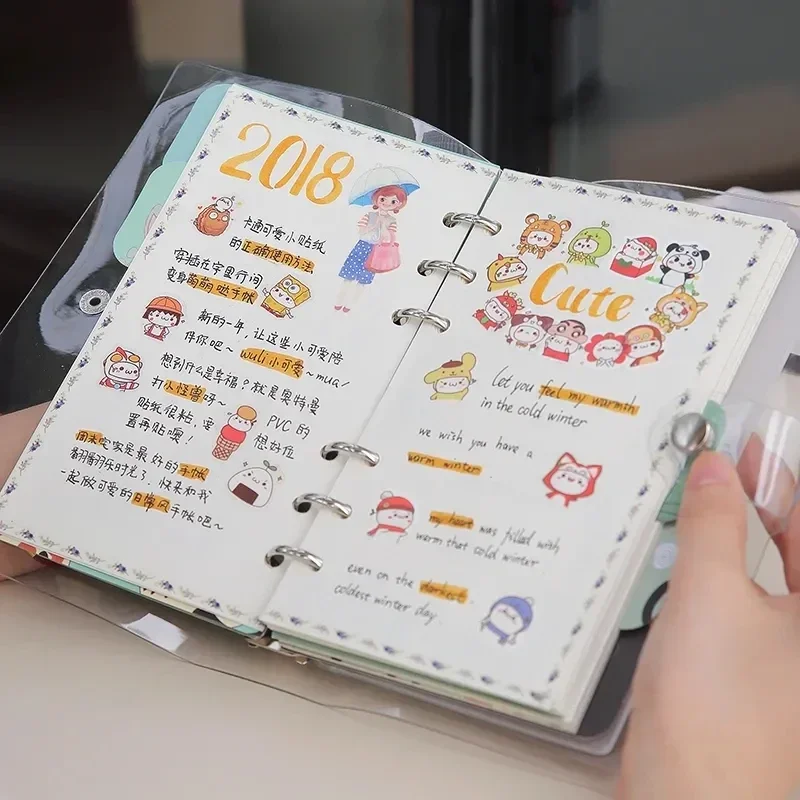 2018
卡通可爱小贴纸
的正确使用方法
穿插在字里行间
变身萌萌哒手帐
新的一年,让这些小可爱陪
伴你吧~ wuli小可爱~mua/
想到什么是幸福?就是奥特曼
打小怪兽呀~
贴纸很粘,要
置再贴噢!
PVC的
想好位
周末宅家是最好的手帐
翻翻乐时光了.快来和我
一起做可爱的日常风手帐吧~
Cute
let you feel my warmth
in the cold winter
we wish you have a
warm winter
my heart was filled with
warm that cold winter
even on the darkest.
coldest winter day.